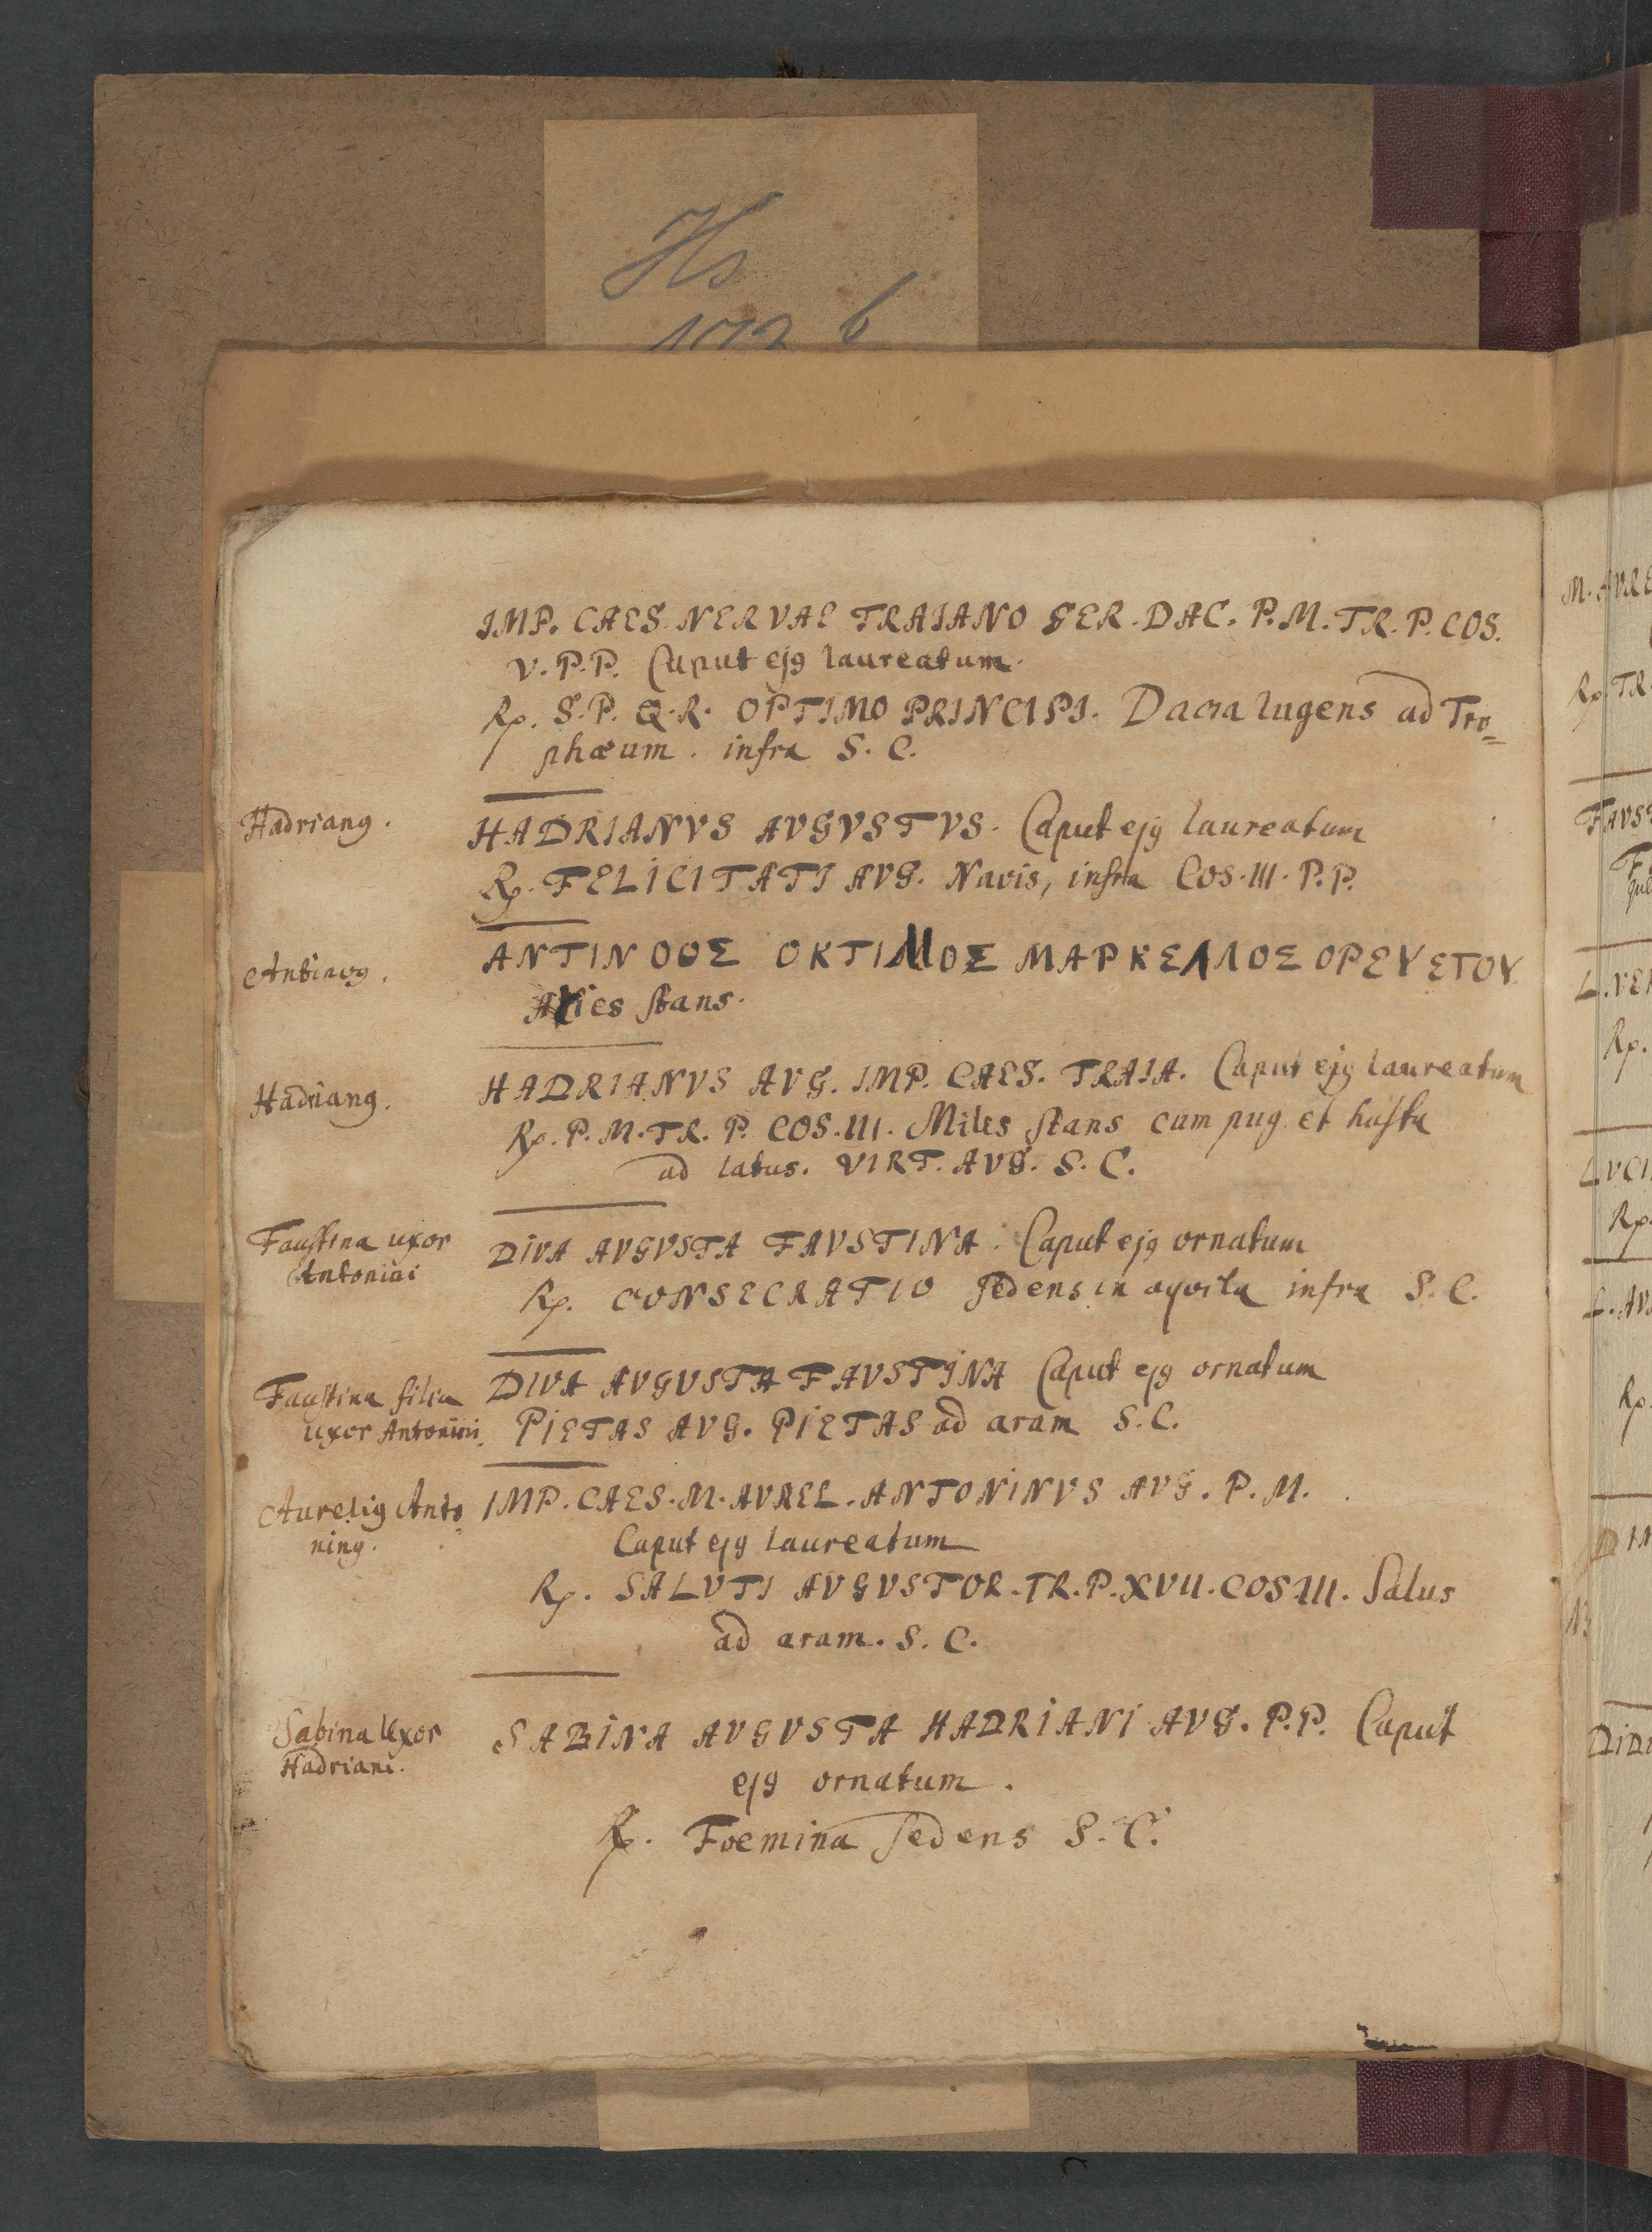 Hs
172 b
IMP. CAES. NERVAE TRAIANO GER. DAC. P. M. TR. P. COS.
V. P. P. Caput ejꝰ laureatum.
Rp. S. P. Q. R. OPTIMO PRINCIPI. Dacia lugens ad Tro=
phæum. infra S. C.
Hadrianꝰ.
HADRIANVS AVGVSTVS. Caput ejꝰ laureatum
Rp. FELICITATI AVG. Navis, infra COS. III. P. P.
Antinoꝰ.
ΑΝΤΙΝΟΟΣ ΟΚΤΙΜΟΣ ΜΑΡΚΕΛΛΟΣ ΟΡΕΥΕΤΟΥ.
Aries stans.
Hadrianꝰ.
HADRIANVS AVG. IMP. CAES. TRAIA. Caput ejꝰ laureatum
Rp. P. M. TR. P. COS. III. Miles stans cum pug. et hasta
ad latus. VIRT. AVG. S. C.
Faustina uxor
Antonini
DIVA AVGVSTA FAVSTINA. Caput ejꝰ ornatum
Rp. CONSECRATIO sedens in aqvila infra S. C.
Faustina filia
uxor Antonini.
DIVA AVGVSTA FAVSTINA Caput ejꝰ ornatum
PIETAS AVG. PIETAS ad aram S. C.
Aureliꝰ Anto=
ninꝰ.
IMP. CAES. M. AVREL. ANTONINVS AVG. P. M.
Caput ejꝰ laureatum
Rp. SALVTI AVGVSTOR. TR. P. XVII. COS III. Salus
ad aram. S. C.
Sabina Uxor
Hadriani.
SABINA AVGVSTA HADRIANI AVG. P. P. Caput
ejꝰ ornatum.
Rp. Foemina sedens S. C.